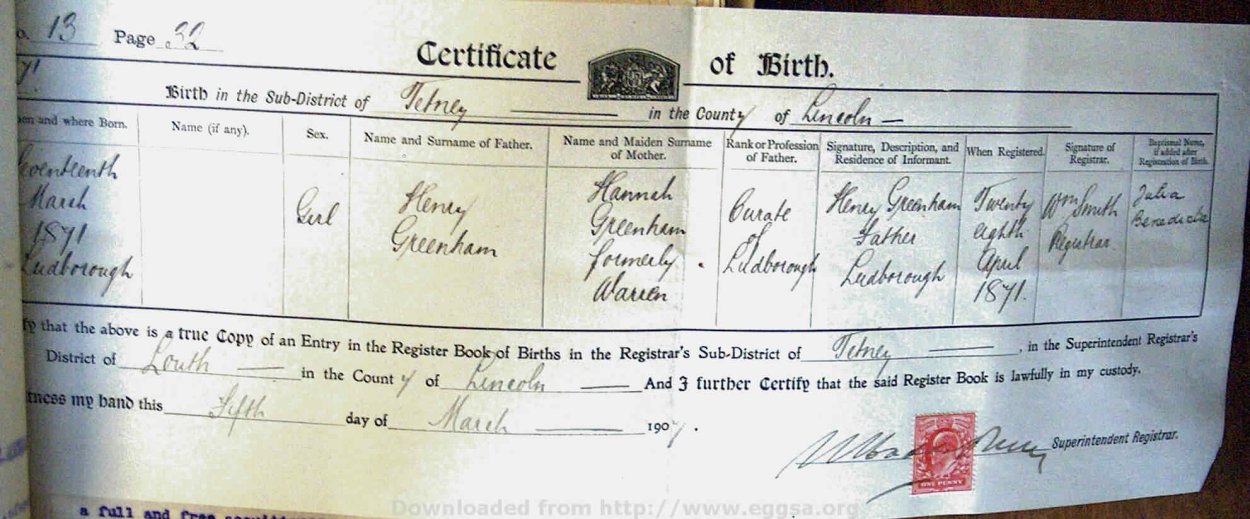 o. 13 Page 32
Certificate of Birth.
71
Birth in the Sub-District of Tetney in the County of Lincoln
en and where Born.
Name (if any).
Sex.
Name and Surname of Father.
Name and Maiden Surname
of Mother.
Rank or Profession
of Father.
Signature, Description, and
Residence of Informant.
When Registered.
Signature of
Registrar.
Baptismal Name,
if added after
Registration of Birth.
eventeenth
March
1871
Ludborough
Girl
Henry
Greenham
Hannah
Greenham
formerly
Warren
Curate
of
Ludborough
Henry Greenham
Father
Ludborough
Twenty
eighth
April
1871.
Wm Smith
Registrar
Julia
Benedicta
fy that the above is a true Copy of an Entry in the Register Book of Births in the Registrar's Sub-District of Tetney, in the Superintendent Registrar's
District of Louth in the County of Lincoln And I further Certify that the said Register Book is lawfully in my custody.
tness my hand this Fifth day of March 1907.
Superintendent Registrar.
ONE PENNY
a full and free
Downloaded from http://www.eggsa.org